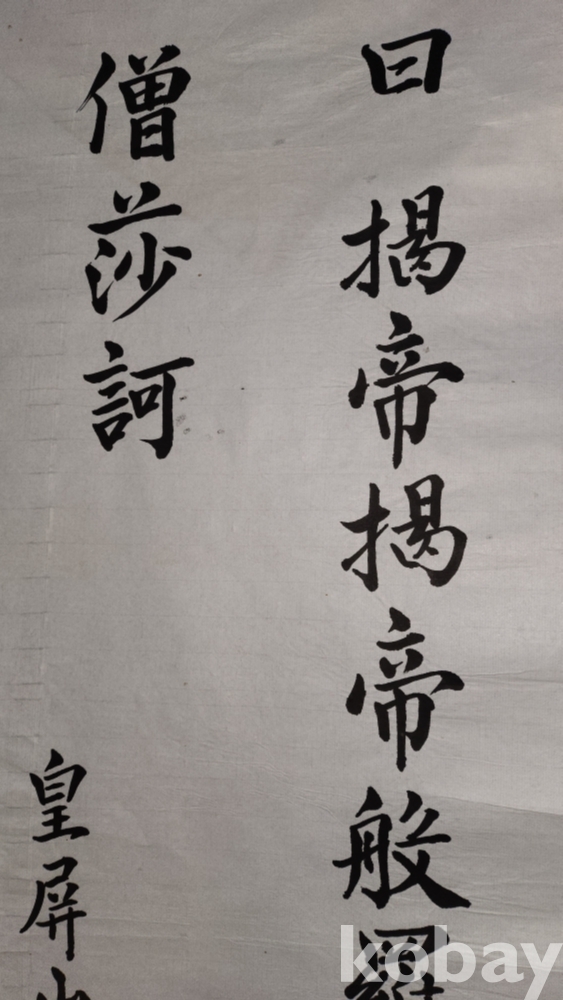 曰 揭帝揭帝般羅
僧莎訶
皇屛山
kobay